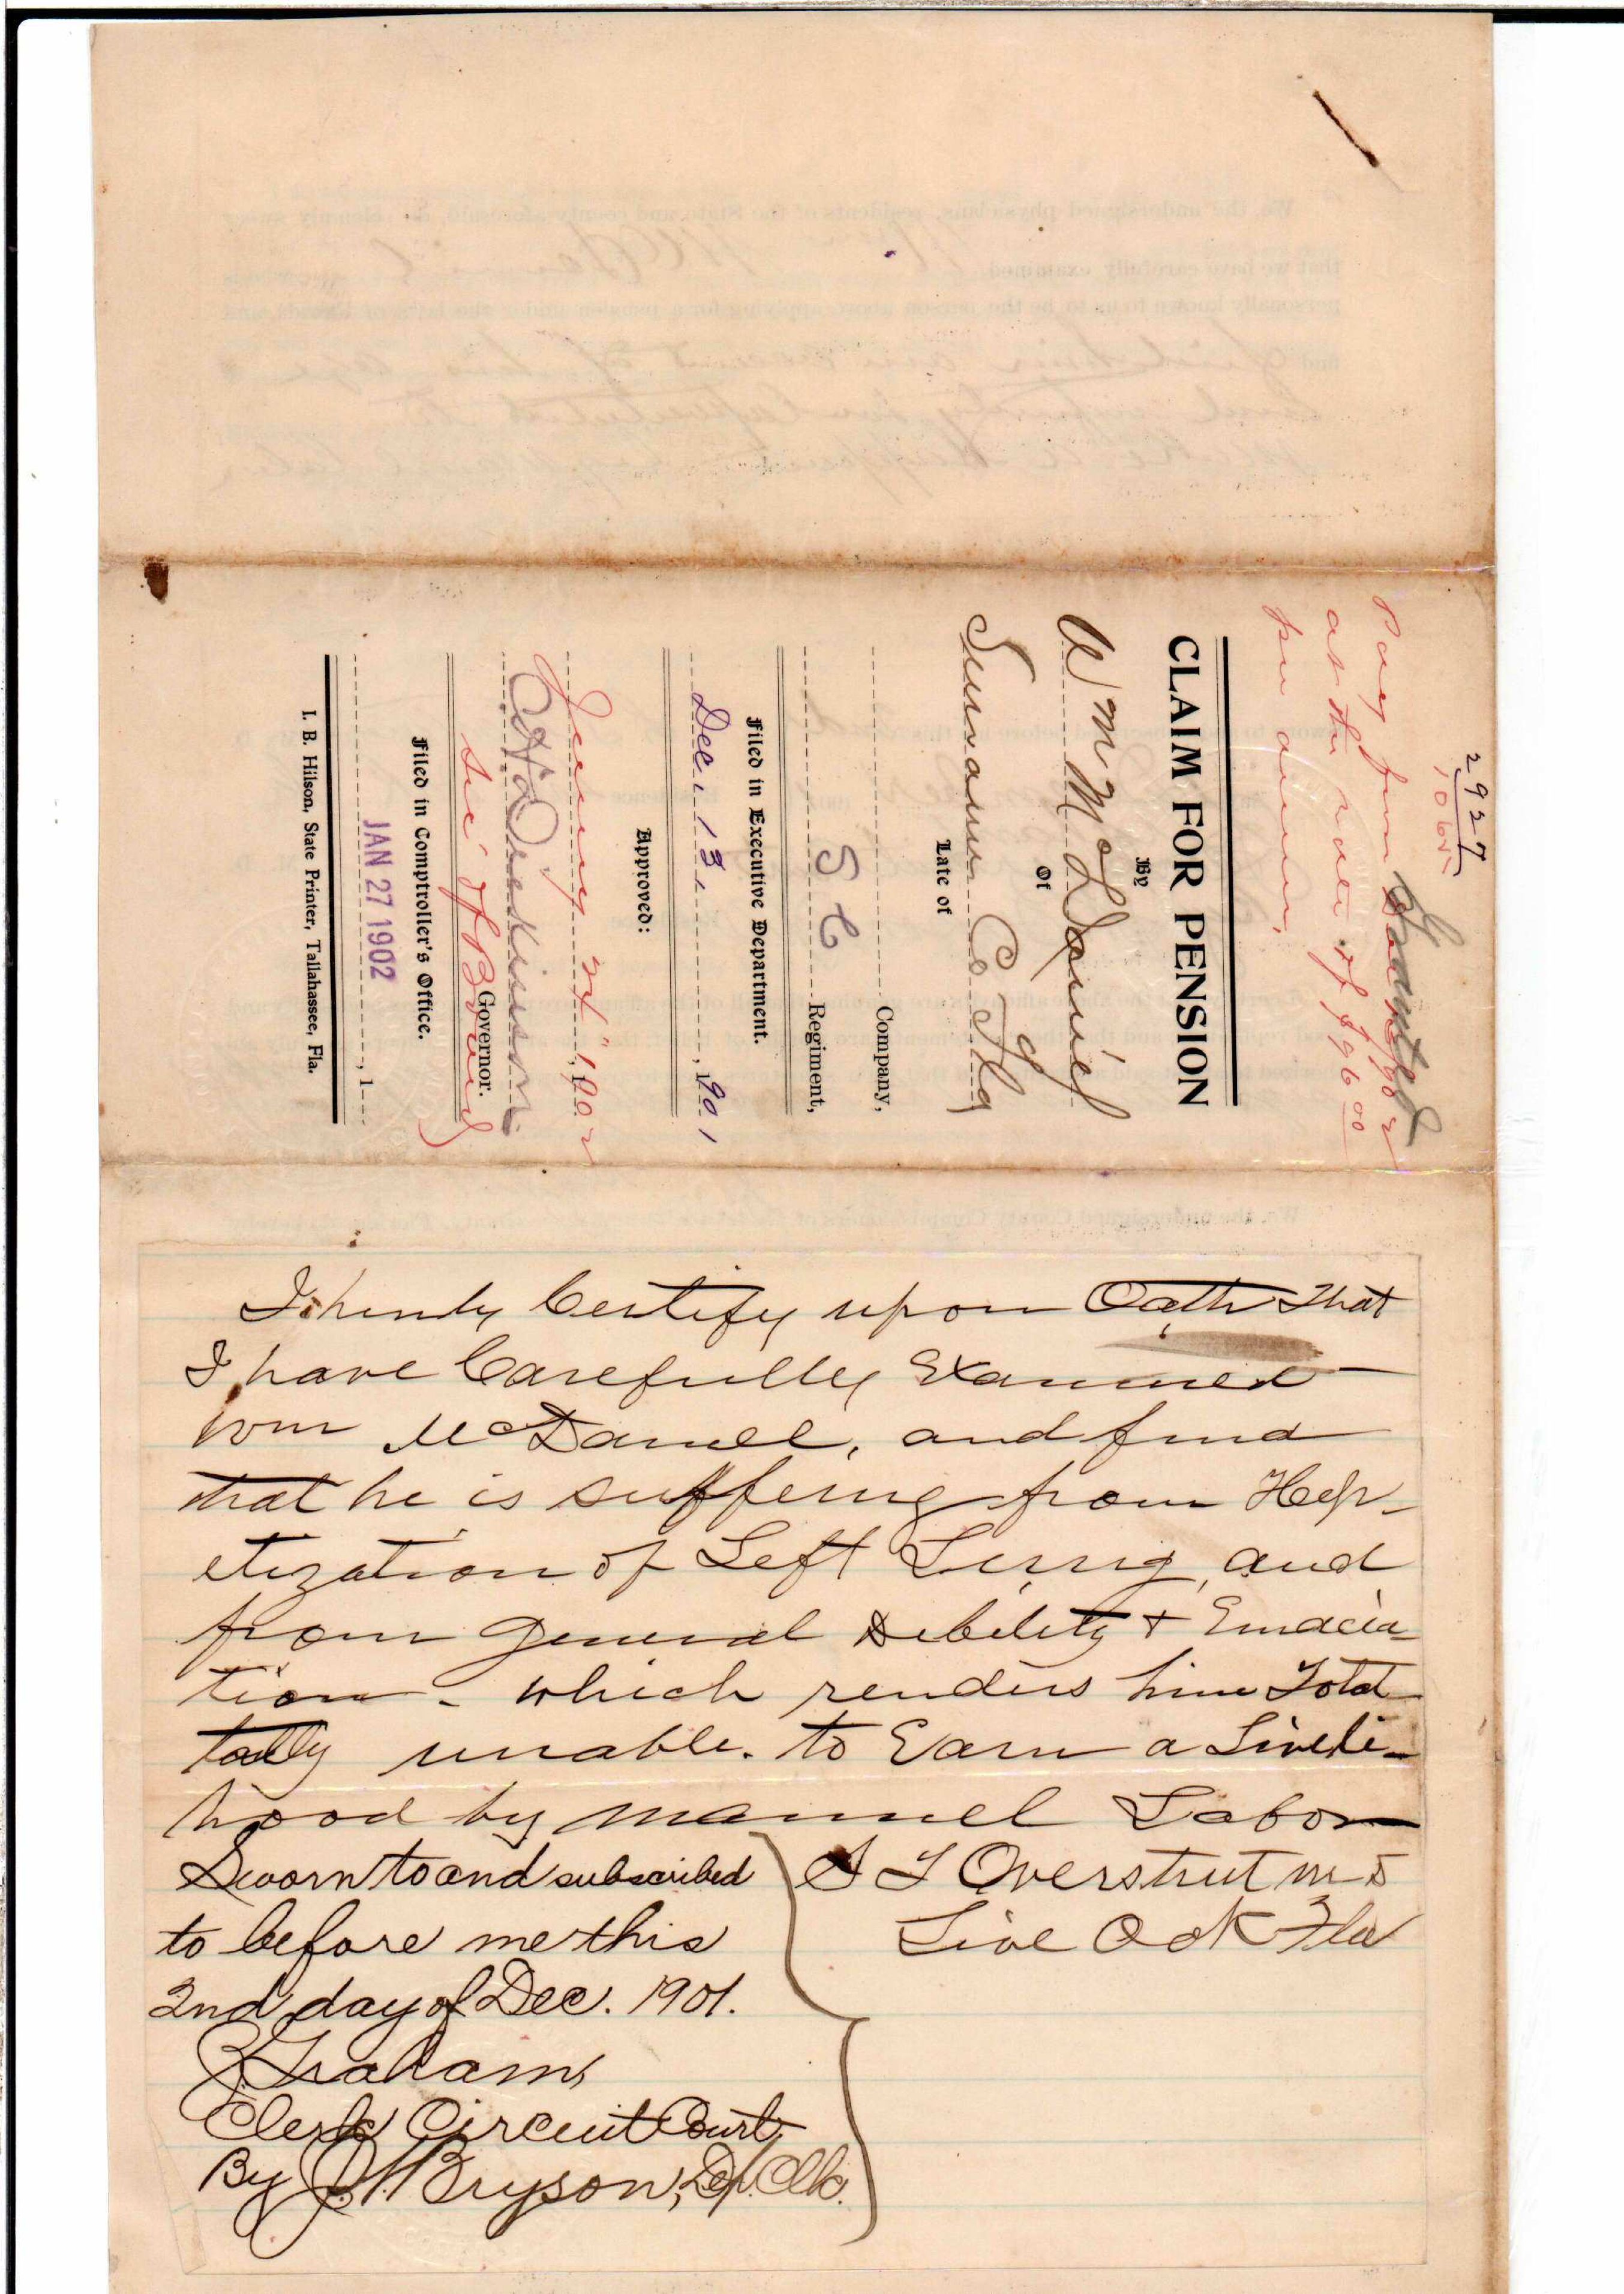 2927
10655
Granted
Pay from
at the rate of $96 00
per annum.
CLAIM FOR PENSION
By
Wm McDaniel
Of
Suwannee Co Fla
Late of
Company,
S C Regiment,
Filed in Executive Department.
Dec. 13. , 1901
Approved:
24" 1902
Governor.
Sec' of Board
Filed in Comptroller's Office.
JAN 27 1902
, 1
I. B. Hilson, State Printer, Tallahassee, Fla.
I herely Certify upon Oath That
I have Carefully Examined
Wm McDaniel, and find
that he is suffering from Hep-
etization of Left Lung, and
from General Debility + Emacia-
tion - which renders him Total
tally unable. to Earn a Liveli-
hood by manuel Labor
Sworn to and subscribed
to before me this
2nd day of Dec. 1901.
Graham,
Clerk Circuit Court
By Bryson, D. Clk.
S T Overstreet MD
Live Oak Fla